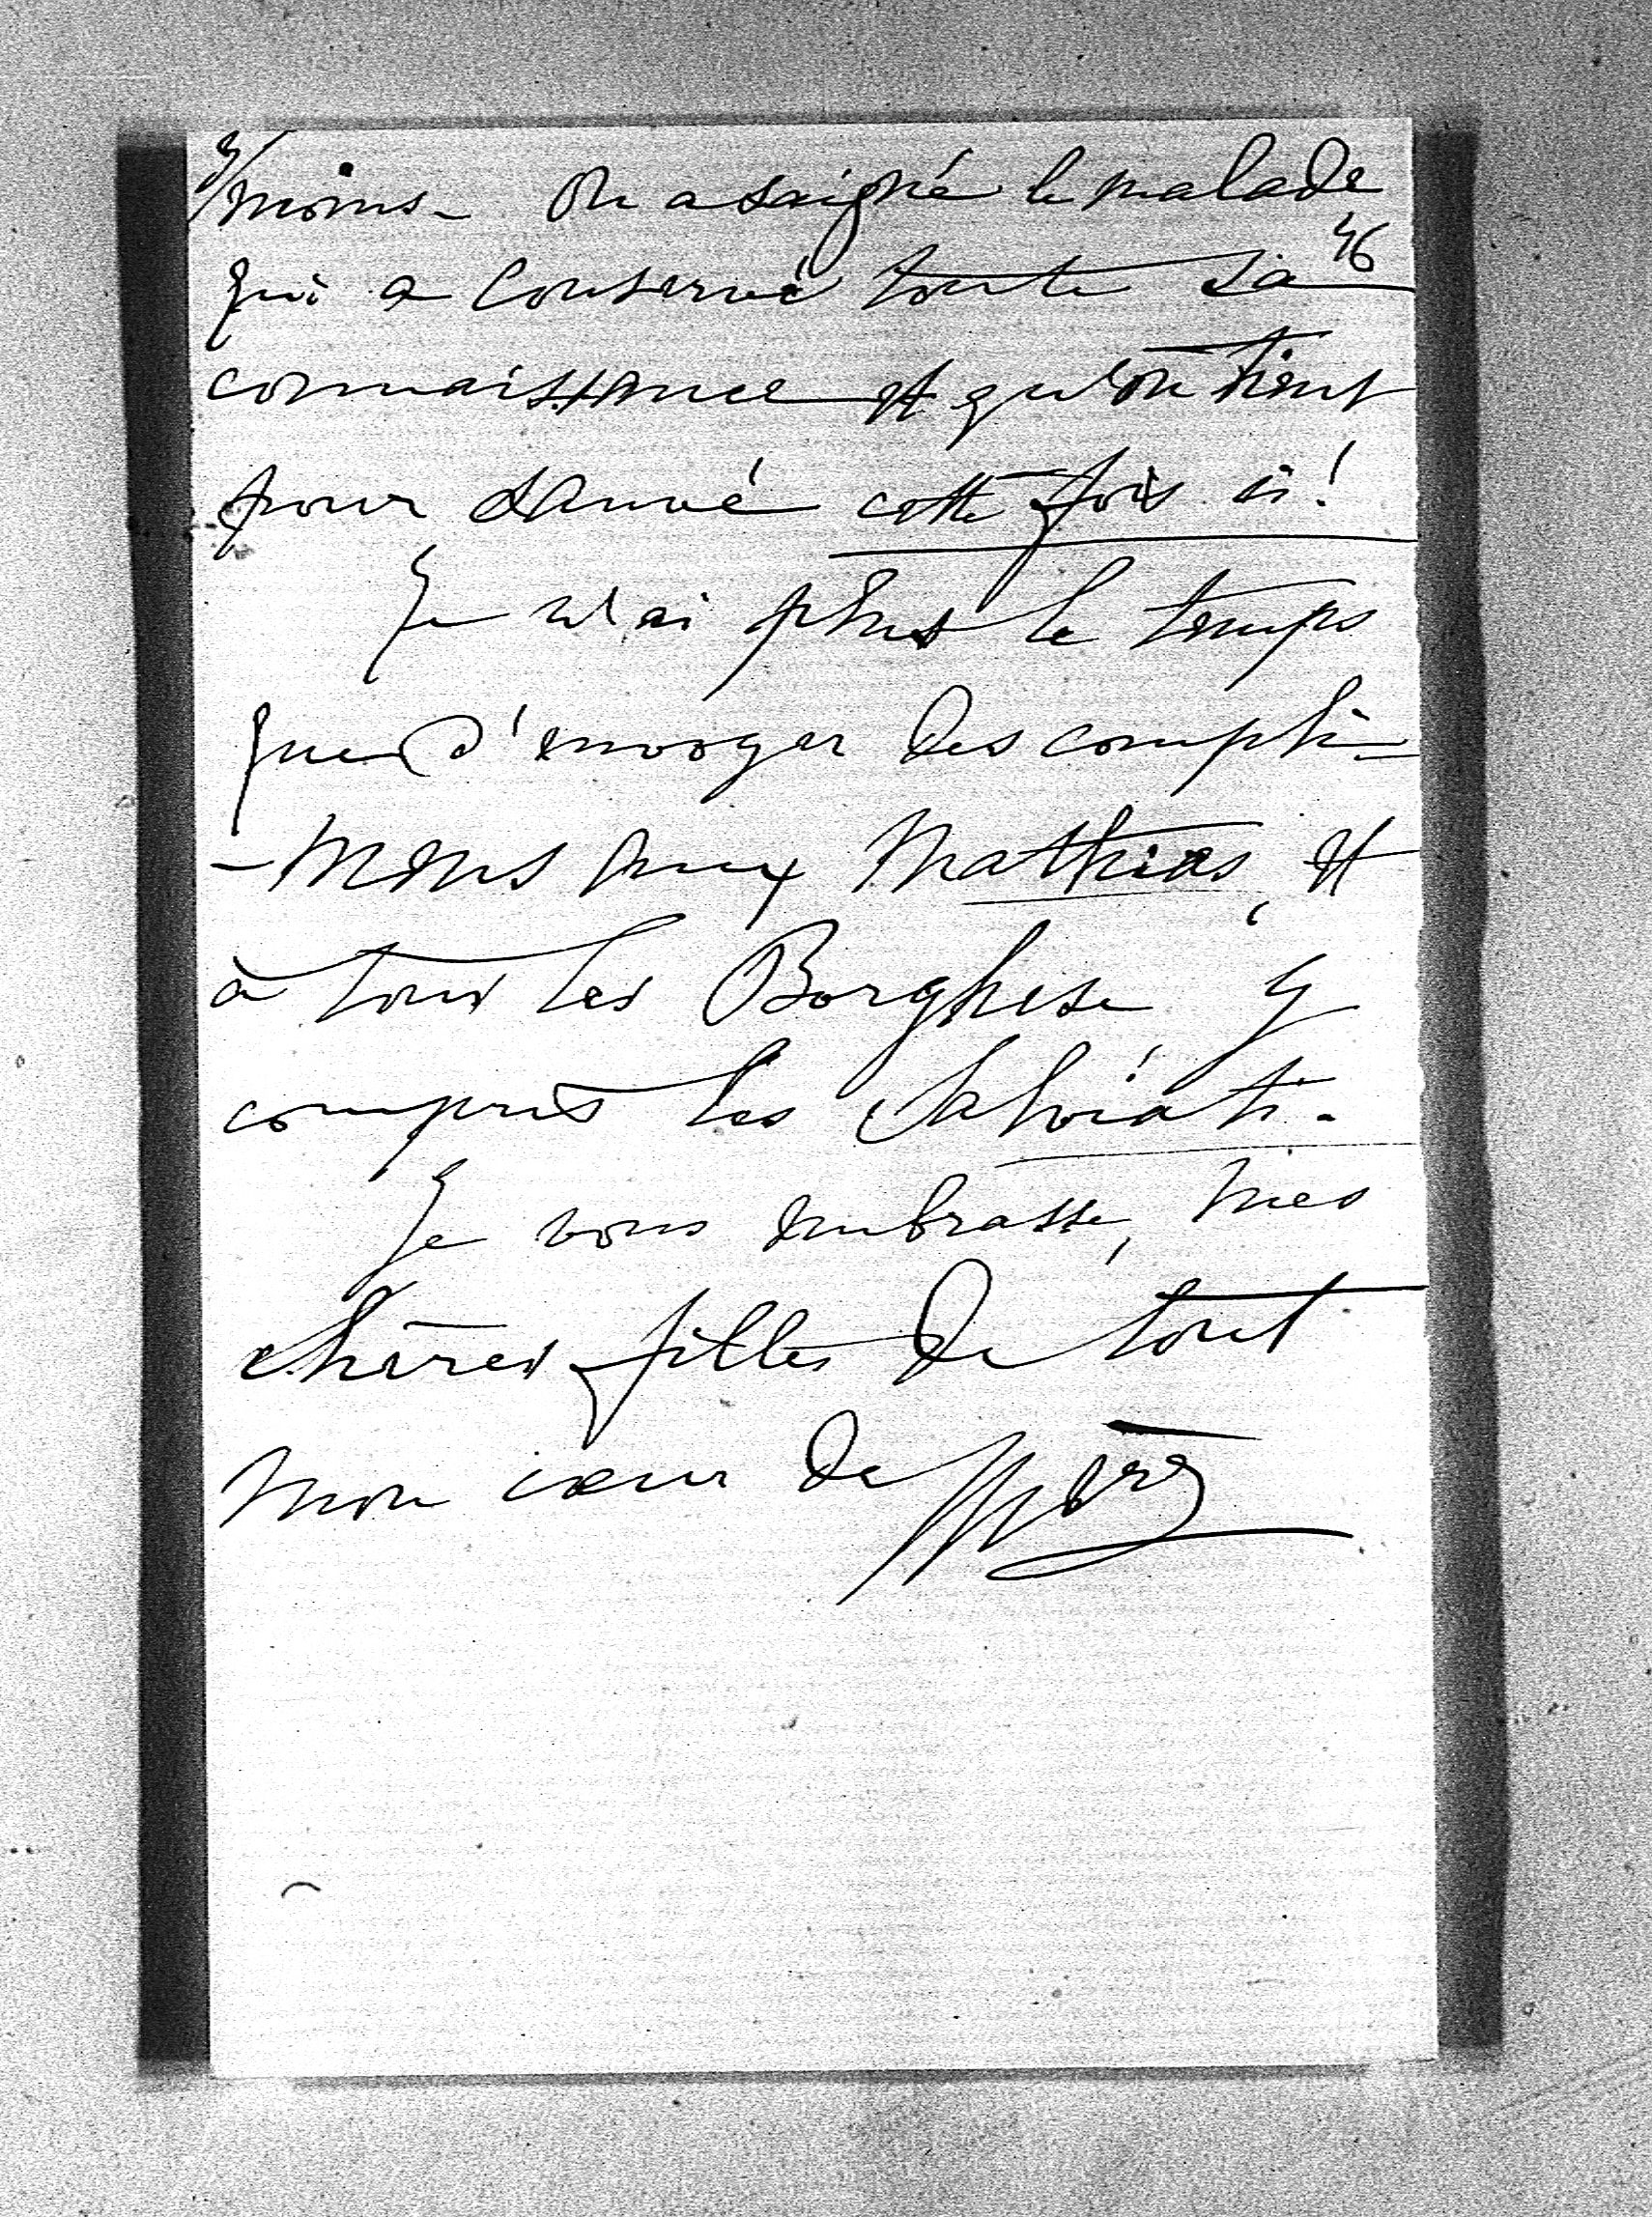 3/
moins - On a saigné le malade
46
qui a conservé toute sa
connaissance et qu'on tient
pour sauvé cette fois ci !
Je n'ai plus le temps
que d'envoyer des compli-
-mens aux Mathias, et
à tous les Borghese y
compris les Salviati.
Je vous embrasse, mes
chères filles de tout
mon cœur de Mère